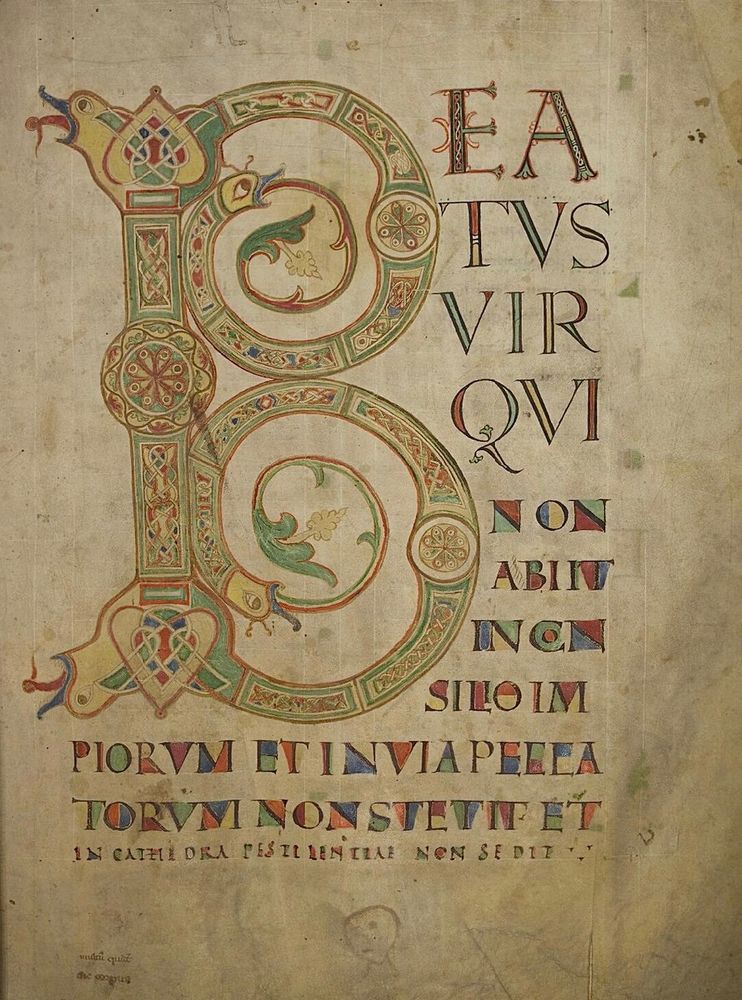 BEA
TVS
VIR
QVI
NON
ABIIT
IN CON
SILIO IM
PIORVM ET IN VIA PECCA
TORVM NON STETIT ET
IN CATHEDRA PESTILENTIAE NON SEDIT